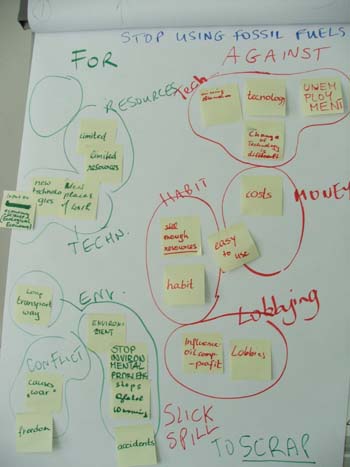 STOP USING FOSSIL FUELS
FOR
AGAINST
RESOURCES
limited
limited
resources
new
technolo
gies
New
places
of work
TECHN.
ENV.
Long
transport
way
ENVIRON
MENT
STOP
ENVIRON
MENTAL
PROBLEMS
stops
global
warming
CONFLICT
causes
"war"
freedom
accidents
Tech
tecnology
UNEM
PLOY
MENT
Change
of Technology
difficult
HABIT
still
enough
resources
habit
MONEY
costs
easy
to use
Lobbying
Influence
oil comp
-profit
Lobbies
SLICK
SPILL
TO SCRAP